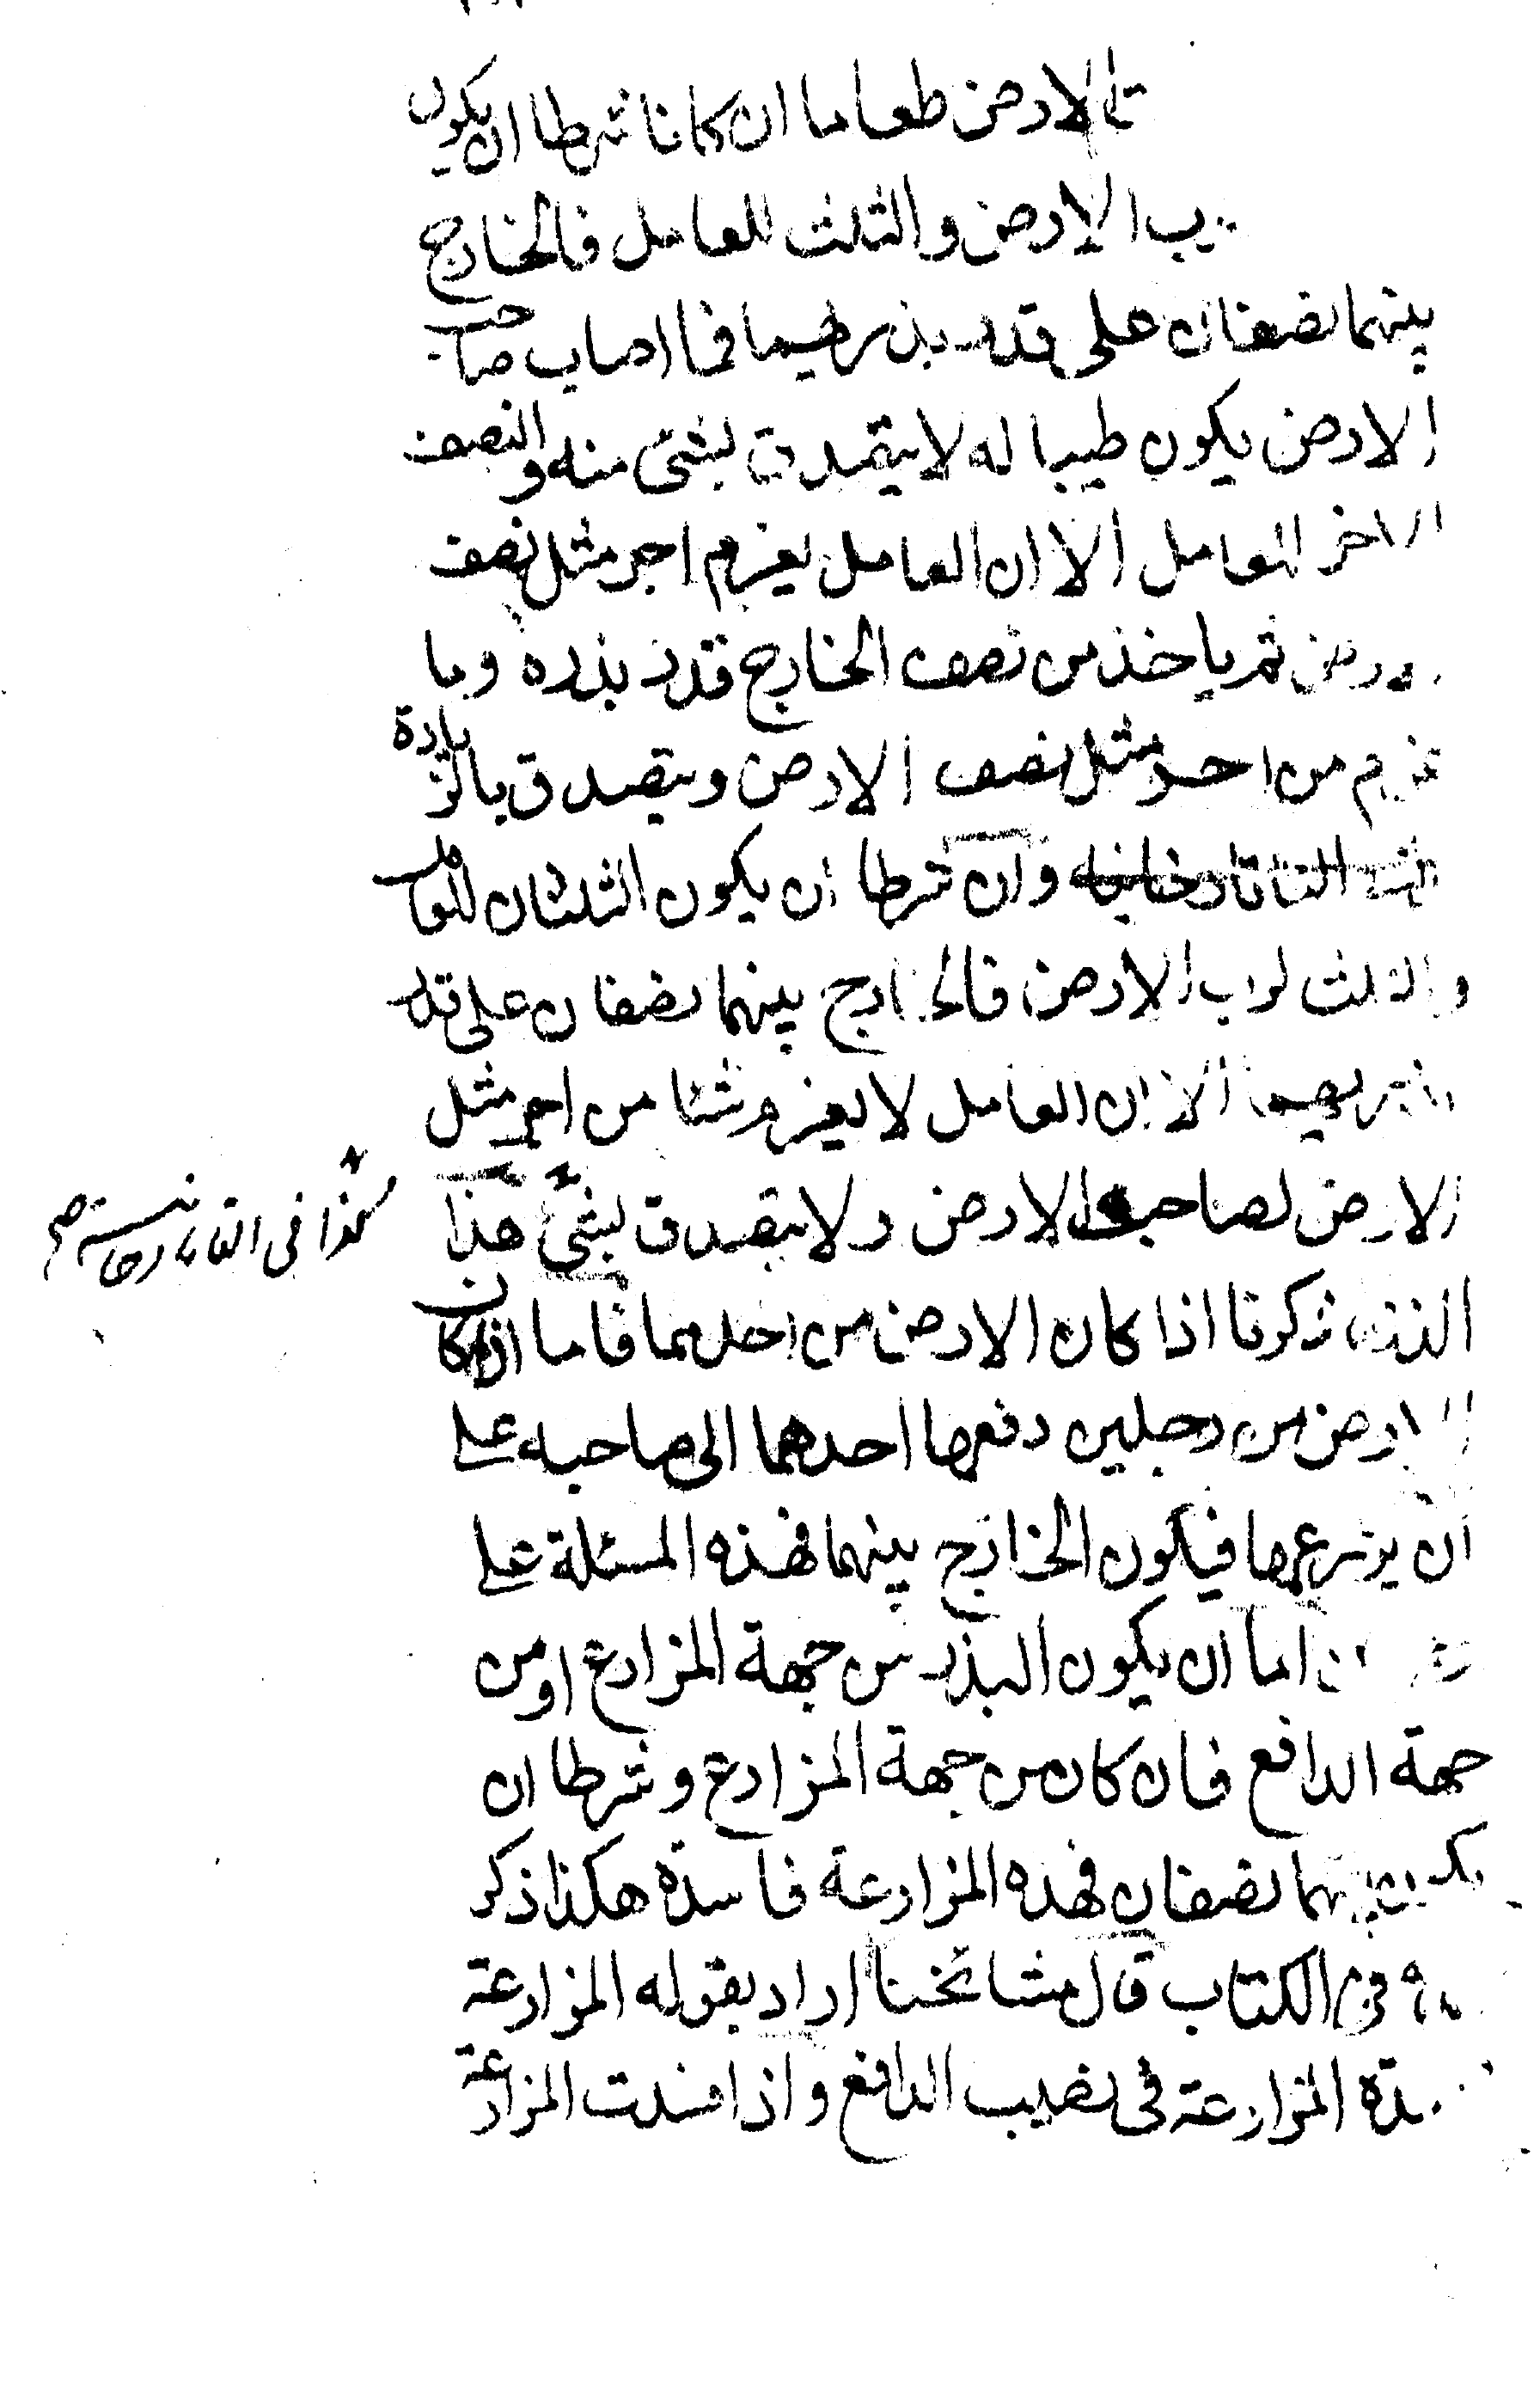 الارض طعاما ان كانا شرطا ان يكون
ب الارض والثلث للعامل فالخارج
بينهما نصفان على قدر بذرهما فما اصاب صاحب
الارض يكون طيبا له لا يتصدق بشئ منه والنصف
الاخر للعامل الا ان العامل يغرم اجر مثل نصف
الارض ثم ياخذ من نصف الخارج قدر بذره وما
غرم من اجر مثل نصف الارض ويتصدق بالزيادة
التاتارخانيه وان شرطا ان يكون الثلثان للعامل
والثلث لرب الارض فالخارج بينهما نصفان على قدر
بذريهما الا ان العامل لا يغرم شئا من اجر مثل
الارض لصاحب الارض ولا يتصدق بشئ هذا
كذا فى التاتارخانية صح
الذى ذكرنا اذا كان الارض من احدهما فاما اذا كان
الارض من رجلين دفعها احدهما الى صاحبه على
ان يزرعها فيكون الخارج بينهما فهذه المسئلة على
اما ان يكون البذر من جهة المزارع او من
جهة الدافع فان كان من جهة المزارع وشرطا ان
يكون بينهما نصفان فهذه المزارعة فاسدة هكذا ذكر
فى الكتاب قال مشائخنا اراد بقوله المزارعة
المزارعة فى نصيب الدافع واذا فسدت المزارعة